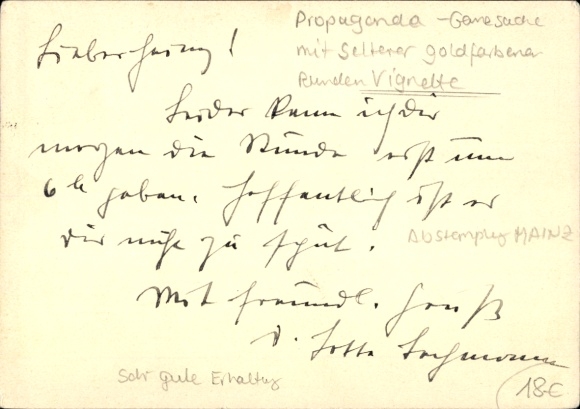 Propaganda - Ganzsache
mit seltener goldfarbener
runden Vignette
Lieber Heinz!
Leider kann ich dir
morgen die Stunde erst um
6 h geben. Hoffentlich ist es
dir nicht zu spät.
Abstemplug MAINZ
Mit freundl. Gruß
D. Lotte
Sehr gute Erhaltug
18€